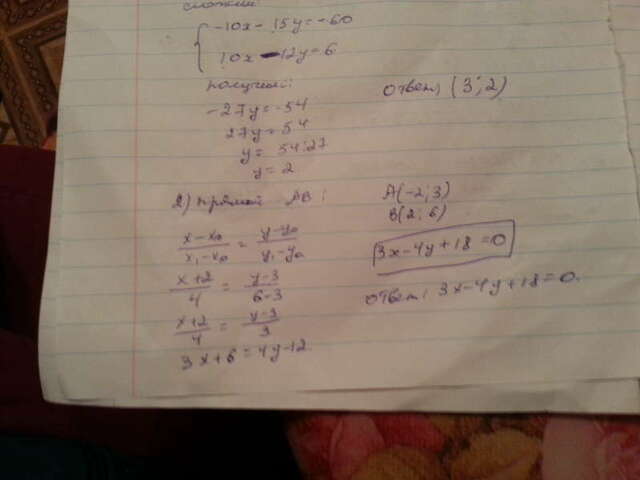 сложим:
-10x - 15y = -60
10x - 12y = 6
получим:
-27y = -54
27y = 54
y = 54:27
y = 2
Ответ: (3; 2)
2) прямой AB:
A(-2; 3)
B(2; 6)
x-x₀/x₁-x₀ = y-y₀/y₁-y₀
x+2/4 = y-3/6-3
x+2/4 = y-3/3
3x+6 = 4y-12
3x-4y+18=0
Ответ: 3x-4y+18=0.